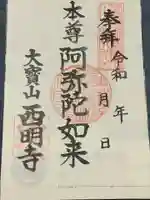 奉拝
令和 年 月 日
本尊 阿弥陀如来
大寶山 西明寺